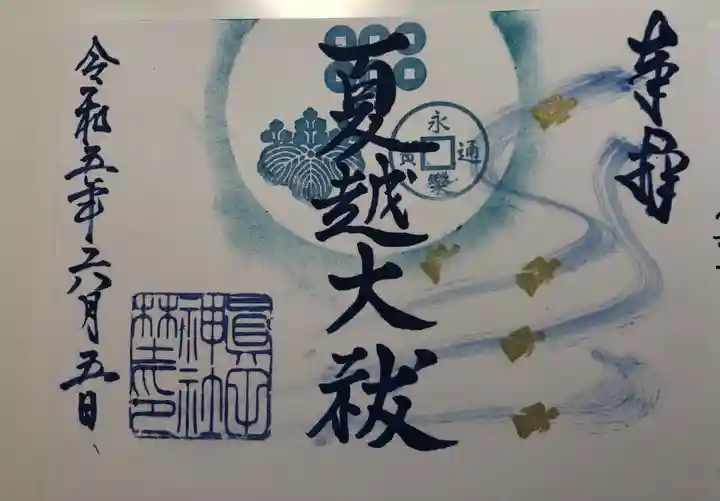 奉拝
夏越大祓
永樂通寳
眞田
神社
令和五年六月五日